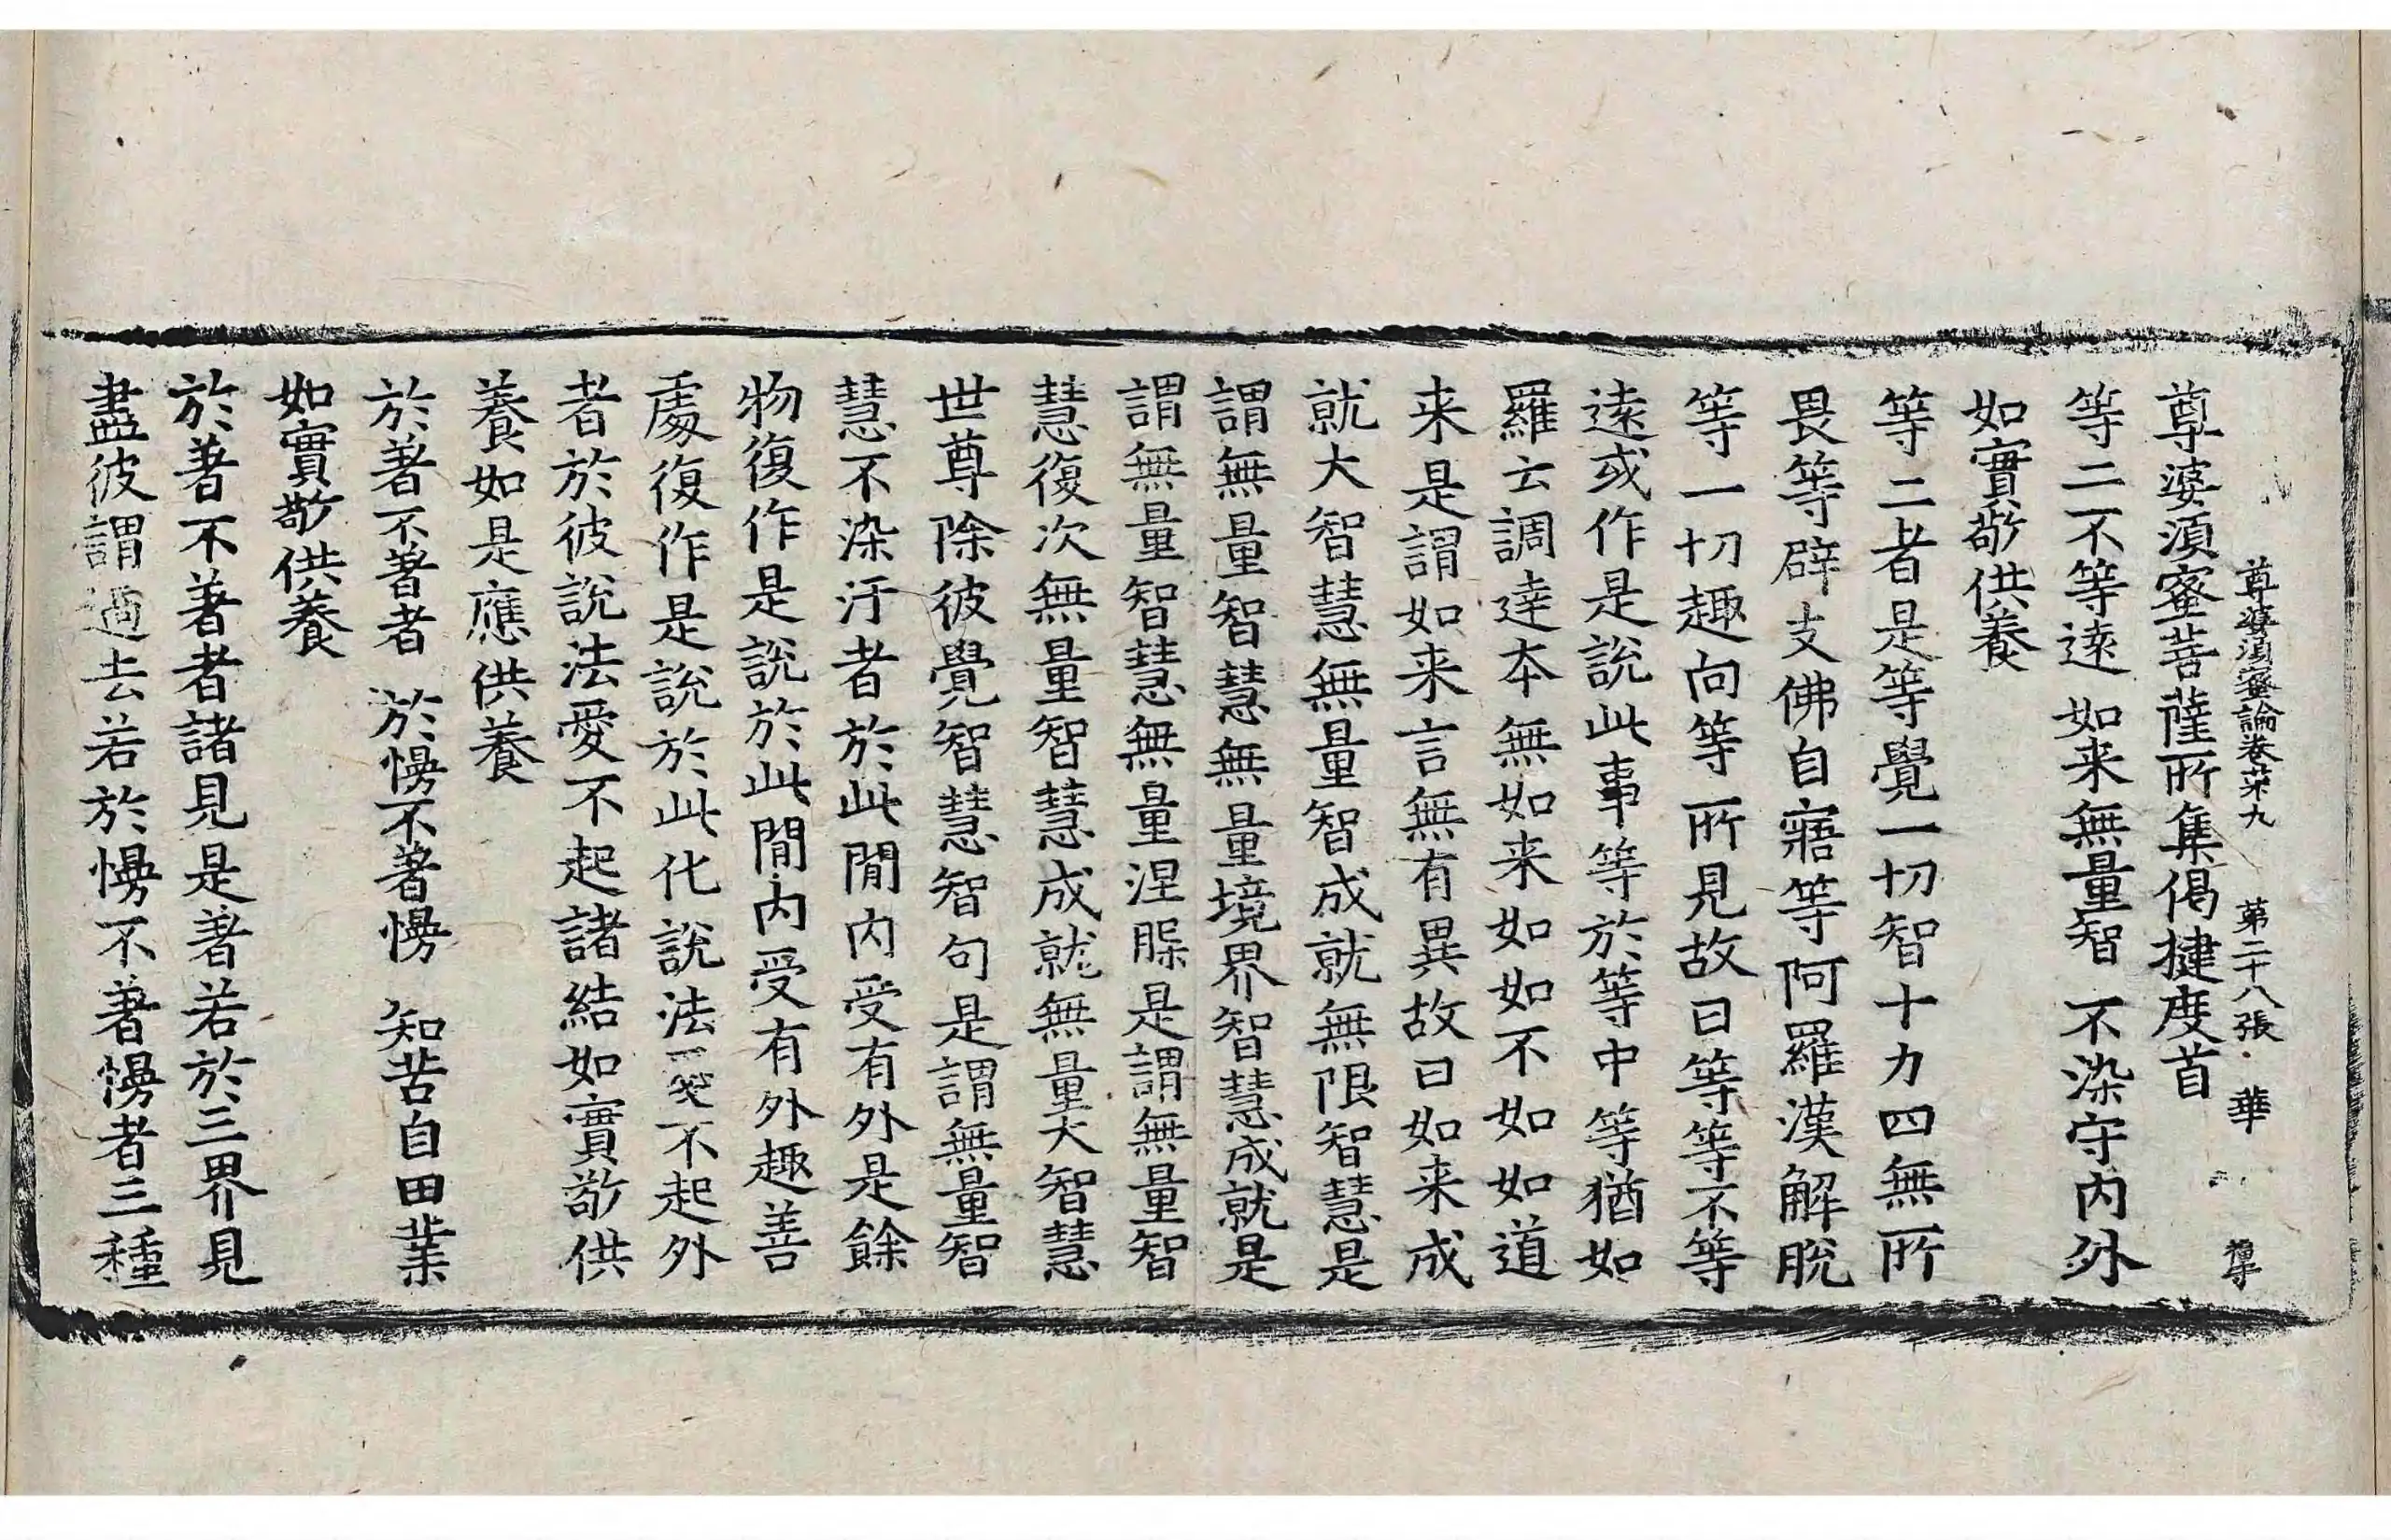 尊婆須蜜論卷苐九 苐二十八張 華
尊婆須蜜菩薩所集偈揵度首
等二不等逺 如来無量智 不染守内外
如實敬供養
等二者是等覺一切智十力四無所
畏等辟支佛自寤等阿羅漢解脫
等一切趣向等所見故曰等等不等
逺或作是說此事等於等中等猶如
羅云調達本無如来如如不如如道
来是謂如来言無有異故曰如来成
就大智慧無量智成就無限智慧是
謂無量智慧無量境界智慧成就是
謂無量智慧無量涅脲是謂無量智
慧復次無量智慧成就無量大智慧
世尊除彼覺智慧智句是謂無量智
慧不染汙者於此閒内受有外是餘
物復作是說於此閒内受有外趣善
處復作是說於此化說法愛不起外
者於彼說法愛不起諸結如實敬供
養如是應供養
於著不著者 於慢不著慢 知苦自田業
如實敬供養
於著不著者諸見是著若於三界見
盡彼謂過去若於慢不著慢者三種